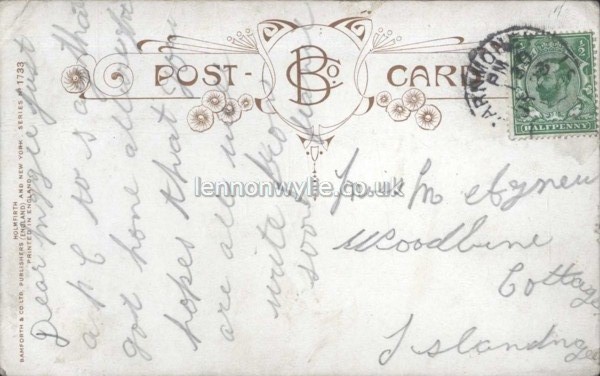 POST- CARD
B Co
ARMOY
PM
HALFPENNY
lennonwylie.co.uk
BAMFORTH & CO LTD. PUBLISHERS (ENGLAND) AND NEW YORK
HOLMFIRTH
PRINTED IN ENGLAND
SERIES No 1733
Dear just
a p C to s a that
got home all right
hopes that you
are all well
write
soon
Agnew
Woodbine
Cottage
Islandmagee